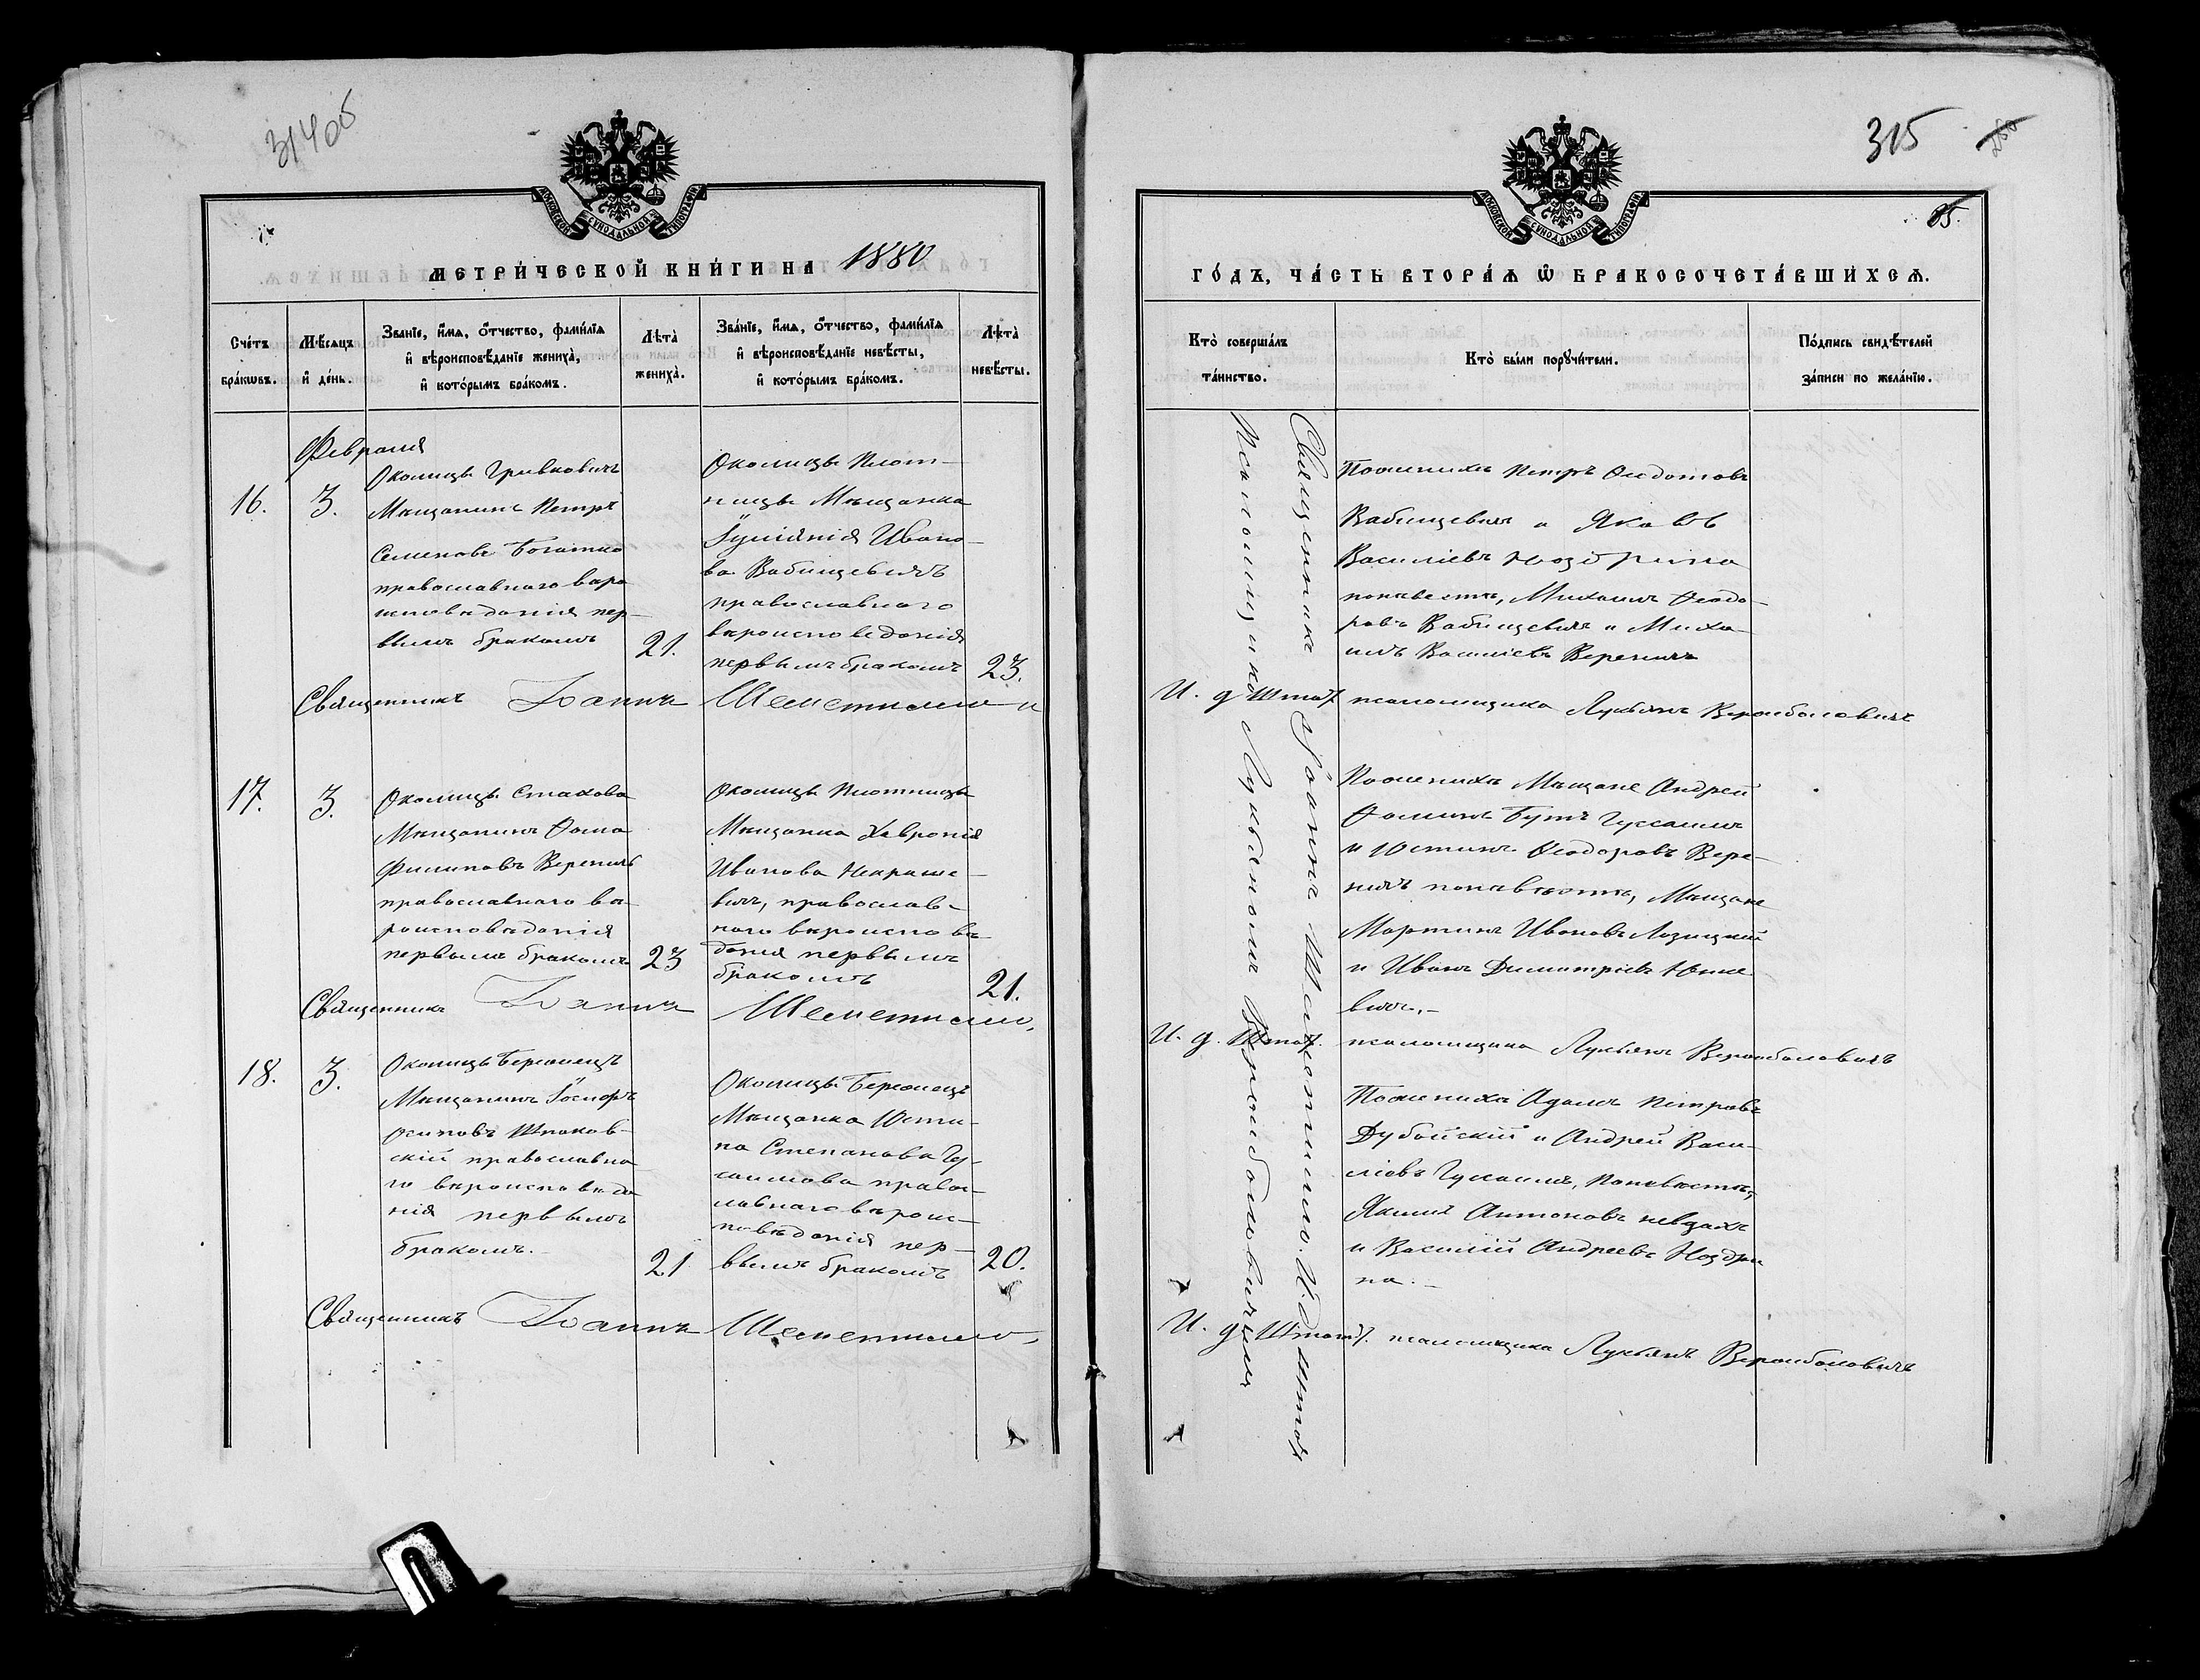 31405
МОСКОВСКОЙ СѴНОДАЛЬНОЙ ТИПОГРАФІИ
МЕТРИ́ЧЕСКОЙ КНИ́ГИ НА 1880
Сче́тъ бра́кωвъ.
Мѣ́сяцъ и҆ де́нь.
Зва́нїе, и҆́мѧ, ѻ҆́тчество, фами́лїѧ
и҆ вѣроисповѣ́данїе жениха̀,
и҆ кото́рымъ бра́комъ.
Лѣ́та̀ жениха̀.
Зва́нїе, и҆́мѧ, ѻ҆́тчество, фами́лїѧ
и҆ вѣроисповѣ́данїе невѣ́сты,
и҆ кото́рымъ бра́комъ.
Лѣ́та̀ невѣ́сты.
Февраля
16.
3.
Околицы Гривковичъ
Мѣщанинъ Петръ
Семеновъ Богатко
православнаго вѣро
исповѣданія пер-
вымъ бракомъ
21.
Околицы Плот-
ницы Мѣщанка
Іуліянія Ивано-
ва Вабищевичъ
православнаго
вѣроисповѣданія
первымъ бракомъ
23.
Священникъ Іоаннъ Шеметилло
17.
3.
Околицы Стахова
Мѣщанинъ Ѳома
Филиповъ Вереничъ
православнаго вѣ-
роисповѣданія
первымъ бракомъ
23
Околицы Плотницы
Мѣщанка Хавронія
Иванова Некраше-
вичъ, православ-
наго вѣроисповѣ-
данія первымъ
бракомъ
21.
Священникъ Іоаннъ Шеметилло,
18.
3.
Околицы Бережецъ
Мѣщанинъ Іосифъ
Осиповъ Шпаков-
скій православна
го вѣроисповѣда
нія первымъ
бракомъ.
21
Околицы Бережецъ
Мѣщанка Юсти-
на Степанова Гу-
саимова правос-
лавнаго вѣроис-
повѣданія пер-
вымъ бракомъ
20.
Священникъ Іоаннъ Шеметилло,
315
85.
МОСКОВСКОЙ СѴНОДАЛЬНОЙ ТИПОГРАФІИ
ГО́ДЪ, ЧА́СТЬ ВТОРА́Ѧ Ѽ БРАКОСОЧЕТА́ВШИХСѦ.
Кто̀ соверша́лъ
та́инство.
Кто̀ бы́ли порꙋчи́тели.
По́дпись свидѣ́телей
за́писи по жела́нїю.
Священникъ Іоаннъ Шеметилло. И. д. штат.
Псаломщика Лукьяномъ Вержболовичемъ
По женихѣ Петръ Ѳедотовъ
Вабищевичъ и Яковъ
Василіевъ Ноздрина
по невѣстѣ, Михаилъ Ѳеодо-
ровъ Вабищевичъ и Миха-
илъ Василіевъ Вереничъ
И. д. Штат. псаломщика Лукьянъ Вержболовичъ
По женихѣ Мѣщане Андрей
Ѳоминъ Бутъ Гуссаимъ
и Юстинъ Ѳеодоровъ Вере-
ничъ по невѣстѣ, Мѣщане
Мартинъ Ивановъ Лозицкій
и Иванъ Димитріевъ
вичъ.-
И. д. Штат. псаломщика Лукьянъ Вержболовичъ
По женихѣ Адамъ Петровъ
Дубойскій и Андрей Васи-
ліевъ Гуссаимъ, По невѣстѣ,
Якимъ Антоновъ
и Василій Андреевъ Ноздри
на.-
И. д. Штат. псаломщика Лукьянъ Вержболовичъ